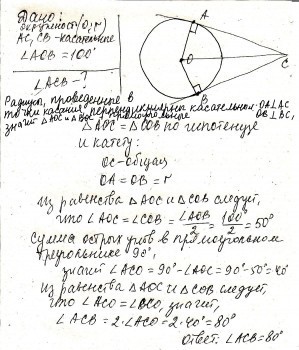 Дано:
окружность(O, r)
AC, CB - касательные
∠AOB = 100°
∠ACB - ?
A
O
B
C
Радиусы, проведенные в
точки касания перпендикулярны касательным OA⊥AC
OB⊥BC,
значит △AOC и △BOC - прямоугольные
△AOC = △COB по гипотенузе
и катету:
OC - общая
OA = OB = r
Из равенства △AOC и △COB следует,
что ∠AOC = ∠COB = ∠AOB/2 = 100°/2 = 50°
Сумма острых углов в прямоугольном
треугольнике 90°,
значит ∠ACO = 90° - ∠AOC = 90° - 50° = 40°
Из равенства △AOC и △COB следует,
что ∠ACO = ∠BCO, значит,
∠ACB = 2·∠ACO = 2·40° = 80°
Ответ: ∠ACB = 80°